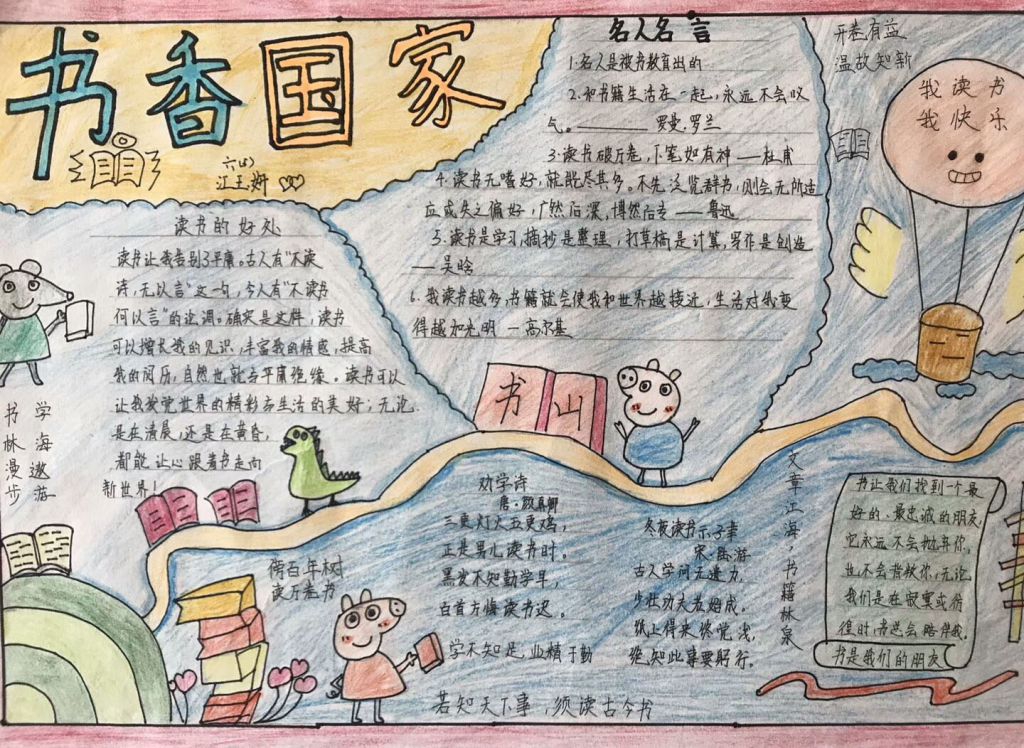 书香国家
六(4)
江玉妍
读书的好处
读书让我告别了平庸。古人有“不读
诗,无以言”这一句,今人有“不读书
何以言”的论调。确实是这样,读书
可以增长我的见识,丰富我的情感,提高
我的阅历,自然也就与平庸绝缘。读书可以
让我发觉世界的精彩与生活的美好;无论
是在清晨,还是在黄昏,
都能让心跟着书走向
新世界!
名人名言
1.名人是被书教育出的
2.和书籍生活在一起,永远不会叹
气。 罗曼.罗兰
3.读书破万卷,下笔如有神 — 杜甫
4.读书无嗜好,就能尽其多。不先泛览群书,则会无所适
应或失之偏好,广然后深,博然后专 — 鲁迅
5.读书是学习,摘抄是整理,打草稿是计算,写作是创造
— 吴晗
6.我读书越多,书籍就会使我和世界越接近,生活对我变
得越加光明 — 高尔基
开卷有益
温故知新
我读书
我快乐
学海遨游
书林漫步
书山
傍百年树
读万卷书
劝学诗
唐·颜真卿
三更灯火五更鸡,
正是男儿读书时。
黑发不知勤学早,
白首方悔读书迟。
学不知足,业精于勤
冬夜读书示子聿
宋·陆游
古人学问无遗力,
少壮功夫老始成。
纸上得来终觉浅,
绝知此事要躬行。
文章江海,书籍林泉
书让我们找到一个最
好的、最忠诚的朋友
它永远不会抛弃你
也不会背叛你,无论
我们是在寂寞或彷
徨时,书总会陪伴我。
书是我们的朋友
若知天下事,须读古今书